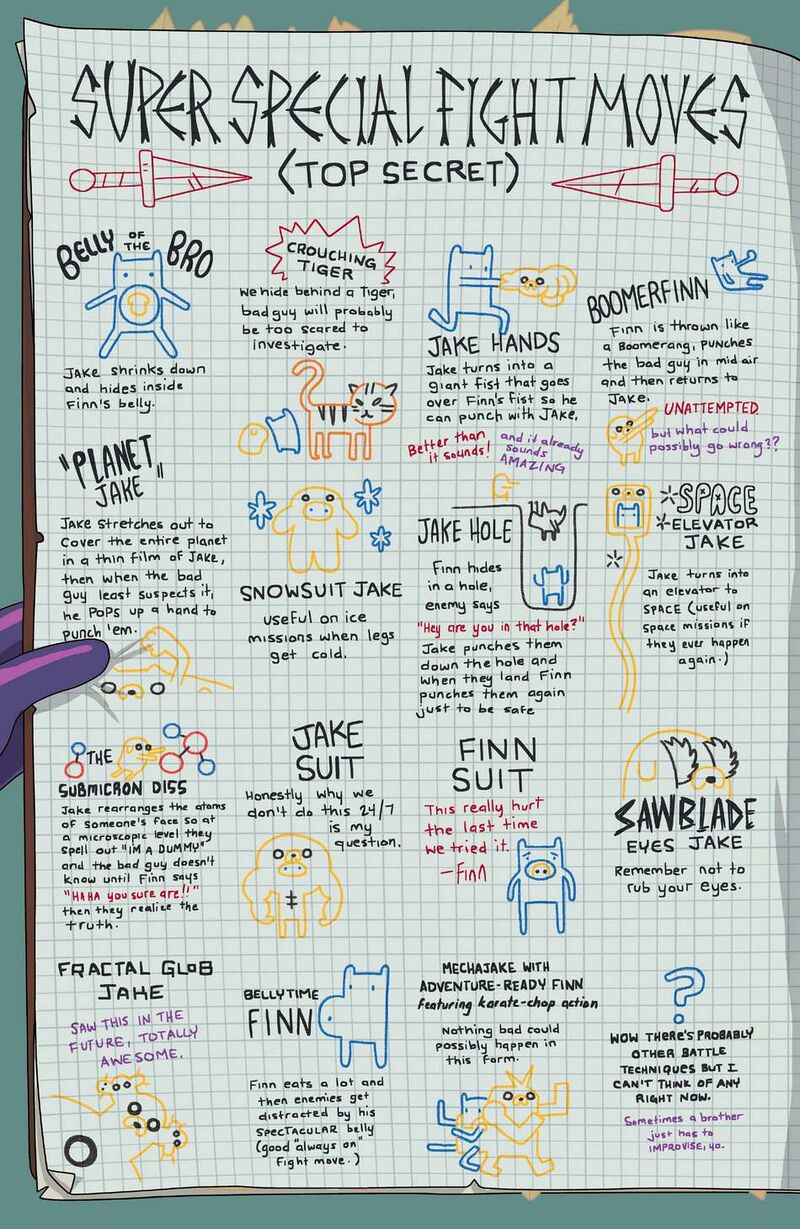 SUPER SPECIAL FIGHT MOVES
(TOP SECRET)
BELLY OF THE BRO
Jake shrinks down
and hides inside
Finn's belly.
CROUCHING
TIGER
We hide behind a Tiger,
bad guy will probably
be too scared to
investigate.
JAKE HANDS
Jake turns into a
giant fist that goes
over Finn's fist so he
can punch with JAKE.
Better than
it sounds!
and it already
sounds
AMAZING
BOOMERFINN
Finn is thrown like
a Boomerang, punches
the bad guy in mid air
and then returns to
Jake.
UNATTEMPTED
but what could
possibly go wrong??
"PLANET
JAKE"
Jake stretches out to
cover the entire planet
in a thin film of JAKE,
then when the bad
guy least suspects it,
he pops up a hand to
punch 'em.
SNOWSUIT JAKE
useful on ice
missions when legs
get cold.
JAKE HOLE
Finn hides
in a hole,
enemy says
"Hey are you in that hole?"
Jake punches them
down the hole and
when they land Finn
punches them again
just to be safe
SPACE
ELEVATOR
JAKE
Jake turns into
an elevator to
SPACE (useful on
space missions if
they ever happen
again.)
THE
SUBMICRON DISS
Jake rearranges the atoms
of someone's face so at
a microscopic level they
spell out "IM A DUMMY"
and the bad guy doesn't
know until Finn says
"HAHA you sure are!!"
then they realize the
truth.
JAKE
SUIT
Honestly why we
don't do this 24/7
is my
question.
FINN
SUIT
This really hurt
the last time
we tried it.
—Finn
SAWBLADE
EYES JAKE
Remember not to
rub your eyes.
FRACTAL GLOB
JAKE
SAW THIS IN THE
FUTURE, TOTALLY
AWESOME.
BELLYTIME
FINN
Finn eats a lot and
then enemies get
distracted by his
SPECTACULAR belly
(good "always on"
fight move.)
MECHAJAKE WITH
ADVENTURE-READY FINN
Featuring karate-chop action
Nothing bad could
possibly happen in
this form.
?
WOW THERE'S PROBABLY
OTHER BATTLE
TECHNIQUES BUT I
CAN'T THINK OF ANY
RIGHT NOW.
Sometimes a brother
just has to
IMPROVISE, yo.